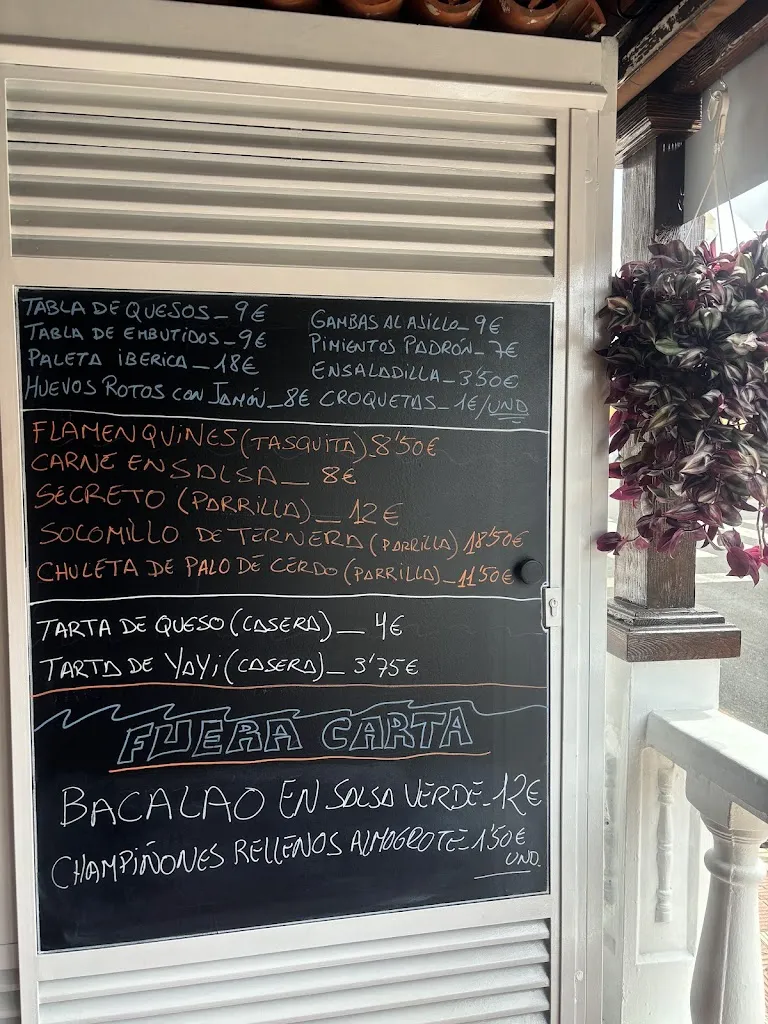 TABLA DE QUESOS_9€
TABLA DE EMBUTIDOS_9€
PALETA IBERICA_18€
HUEVOS ROTOS CON JAMÓN_8€
GAMBAS AL AJILLO_9€
PIMIENTOS PADRÓN_7€
ENSALADILLA_3'50€
CROQUETAS_1€/UND
FLAMENQUINES (TASQUITA) 8'50€
CARNE EN SALSA_8€
SECRETO (PARRILLA)_12€
SOLOMILLO DE TERNERA (PARRILLA) 18'50€
CHULETA DE PALO DE CERDO (PARRILLA)_11'50€
TARTA DE QUESO (CASERA)_4€
TARTA DE YAYI (CASERA)_3'75€
FUERA CARTA
BACALAO EN SALSA VERDE_12€
CHAMPIÑONES RELLENOS ALMOGROTE_1'50€
UND.